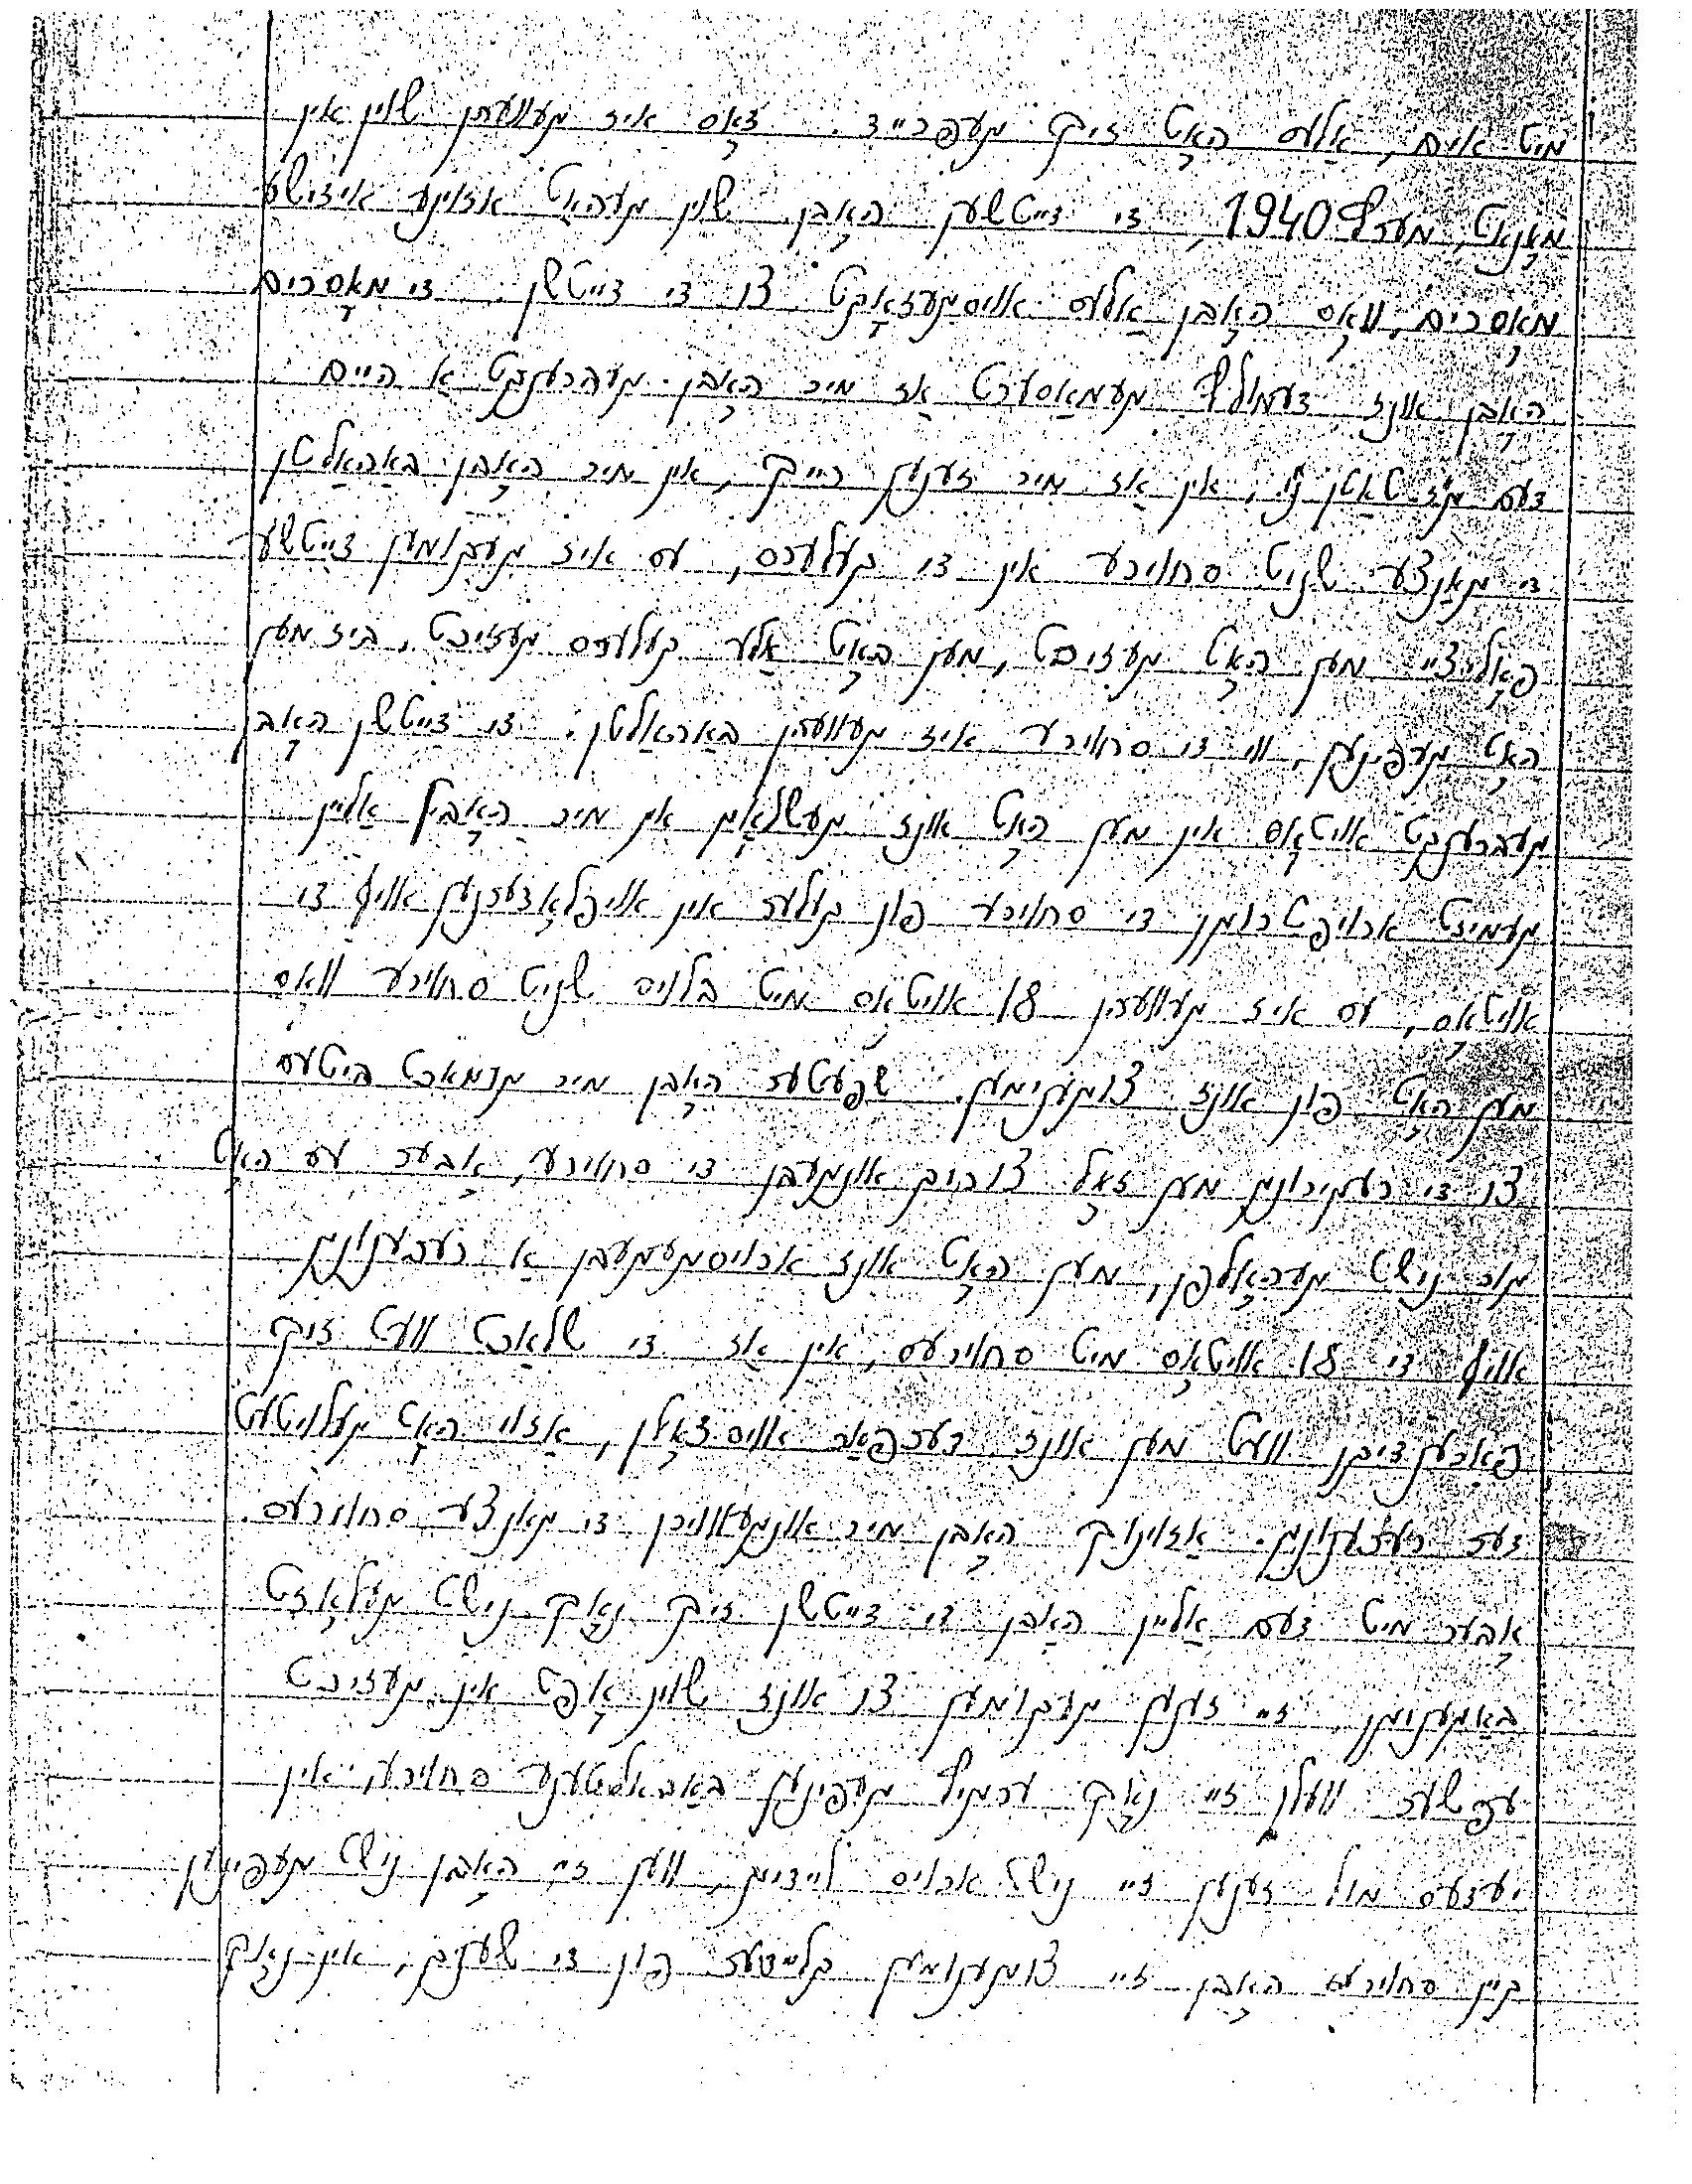 מיט אים, אַלעס האָט זיך געפרייד. דאָס איז געווען שוין אין
מאָנאַט, מערץ 1940, די דייטשען האָבן שוין געהאַט אזוינע אידישע
מאָסרים, וואָס האָבן אַלעס אויסגעזאָגט צו די דייטשן. די מאָסרים
האָבן אונז דעמולץ געמאַסערט אַז מיר האָבן געברענגט אַ היים
דעם טאַטן, אין אַז מיר זענען רייך, אין מיר האָבן באַהאַלטן
די גאַנצע שניט סחוירע אין די קעלערס, עס איז געקומען דייטשע
פאָליציי מען האָט געזוכט, מען האָט אַלע קעלערס געזוכט, ביז מען
האָט געפינען, ווי די סחוירע איז געווען באַהאַלטן. די דייטשן האָבן
געברענגט אויטאָס אין מען האָט אונז געשלאָגן אין מיר האָבין אַליין
געמוזט ארויפטראגן די סחוירע פון קעלער אין אויפלאָדענען אויף די
אויטאָס, עס איז געווען 18 אויטאָס מיט בלויס שניט סחוירע וואָס
מען האָט פון אונז צוגענימען. שפעטער האָבן מיר געמאכט ביטעס
צו די רעגירונג מען זאָל צוריק אונגעבן די סחוירע, אָבער עס האָט
גור נישט געהאָלפן, מען האָט אונז ארויסגעגעבן אַ רעכענונג
אויף די 18 אויטאָס מיט סחוירעס, אין אַז די שלאַכט וועט זיך
פאַרענדיקן וועט מען אונז דערפאַר אויסצאָלן, אַזוי האָט געלויטעט
דער רעכענונג. אַזוינוך האָבן מיר אונגעוווירן די גאַנצע סחוירעס.
אָבער מיט דעם אַליין האָבן די דייטשן זיך נאָך נישט געלאָזט
באַגענוגן, זיי זענען געקומען צו אונז שוין אָפט אין געזוכט
עפשער וועלן זיי נאָך ערגיץ געפינען באַהאַלטענע סחוירע, אין
יעדעס מול זענען זיי נישט ארויס ליידיג, ווען זיי האָבן נישט געפינען
קיין סחוירע האָבן זיי צוגענומען קליידער פון די שענק, אין נאָך